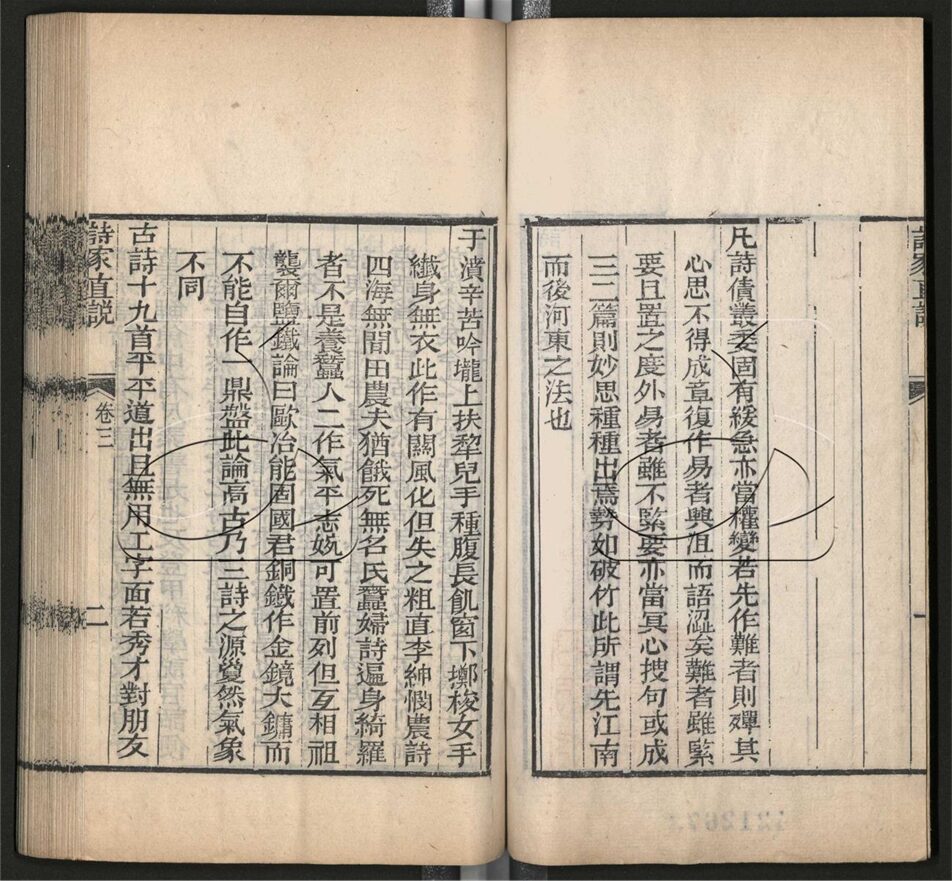 凡詩債叢委固有緩急亦當權變若先作難者則殫其
心思不得成章復作易者興沮而語澀矣難者雖緊
要且置之度外易者雖不緊要亦當冥心搜句或成
三二篇則妙思種種出焉勢如破竹此所謂先江南
而後河東之法也
于濆辛苦吟壠上扶犂兒手種腹長飢窗下擲梭女手
織身無衣此作有關風化但失之粗直李紳憫農詩
四海無閒田農夫猶餓死無名氏蠶婦詩遍身綺羅
者不是養蠶人二作氣平意婉可置前列但互相祖
襲爾鹽鐵論曰歐冶能因國君銅鐵作金鏡大鏞而
不能自作一鼎盤此論高古乃二詩之源覺然氣象
不同
古詩十九首平平道出且無用工字面若秀才對朋友
詩家直說
卷三
二